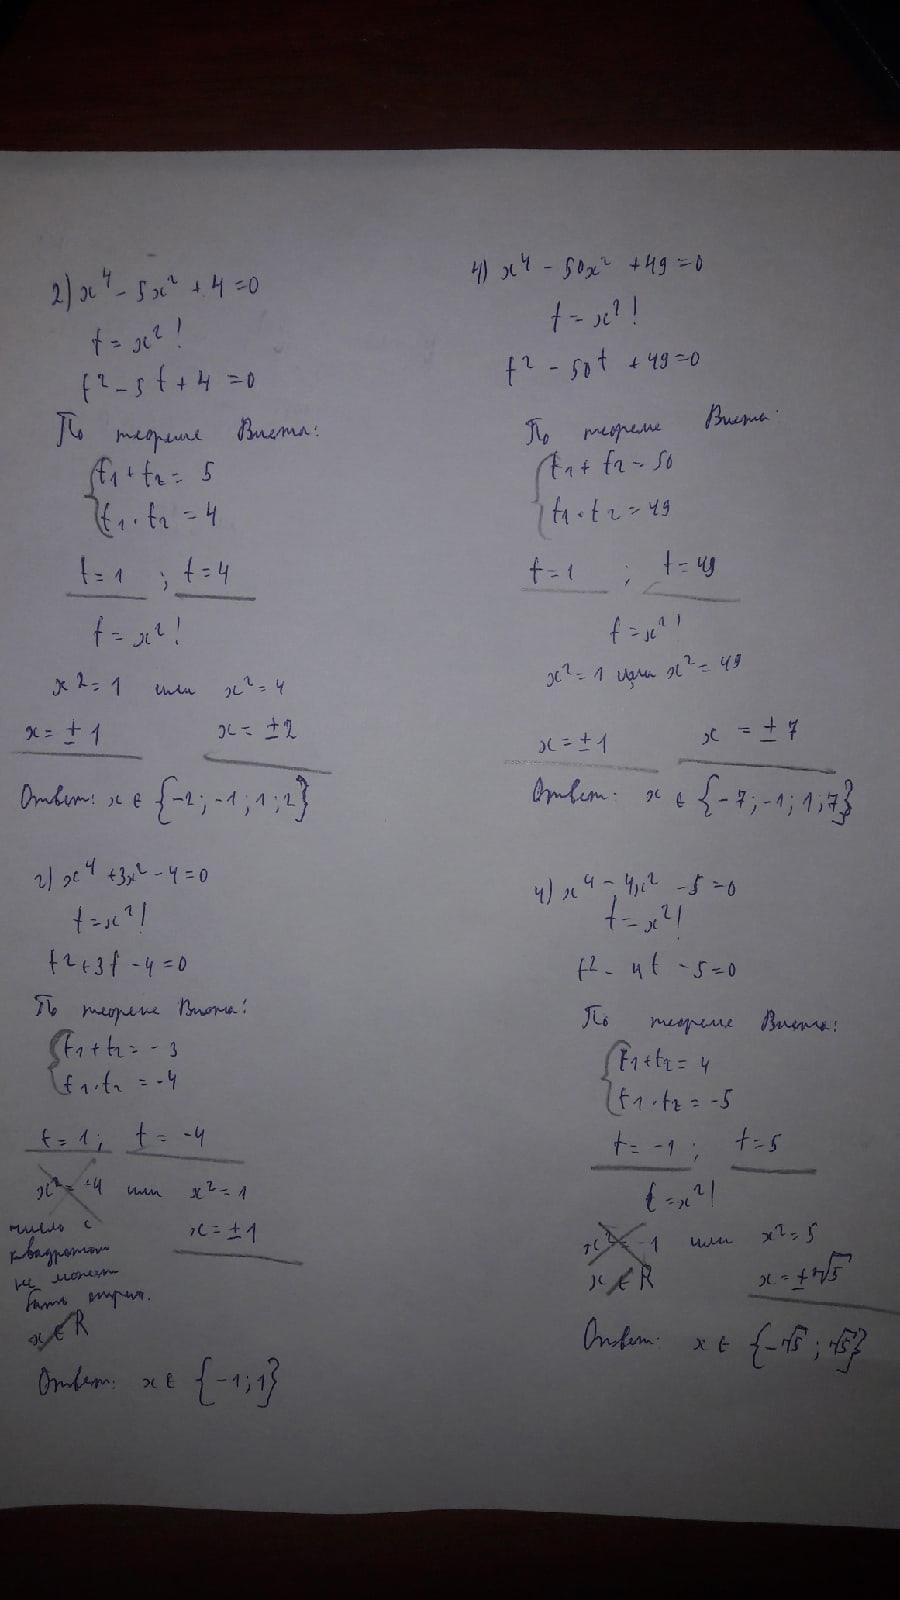 2) x⁴ - 5x² + 4 = 0
t = x²!
t² - 5t + 4 = 0
По теореме Виета:
t₁ + t₂ = 5
t₁ · t₂ = 4
t = 1 ; t = 4
t = x²!
x2 = 1 или x² = 4
x = ± 1 x = ± 2
Ответ: x ∈ {-2; -1; 1; 2}
2) x⁴ + 3x² - 4 = 0
t = x²!
t² + 3t - 4 = 0
По теореме Виета:
t₁ + t₂ = - 3
t₁ · t₂ = -4
t = 1; t = -4
x² = -4 или x² = 1
число с
квадратом
не может
быть отриц.
x = ± 1
x ∉ R
Ответ: x ∈ {-1; 1}
4) x⁴ - 50x² + 49 = 0
t = x²!
t² - 50t + 49 = 0
По теореме Виета:
t₁ + t₂ = 50
t₁ · t₂ = 49
t = 1 ; t = 49
t = x²!
x² = 1 или x² = 49
x = ± 1 x = ± 7
Ответ: x ∈ {-7; -1; 1; 7}
4) x⁴ - 4x² - 5 = 0
t = x²!
t² - 4t - 5 = 0
По теореме Виета:
t₁ + t₂ = 4
t₁ · t₂ = -5
t = -1 ; t = 5
t = x²!
x² = -1 или x² = 5
x ∉ R x = ±√5
Ответ: x ∈ {-√5 ; √5}